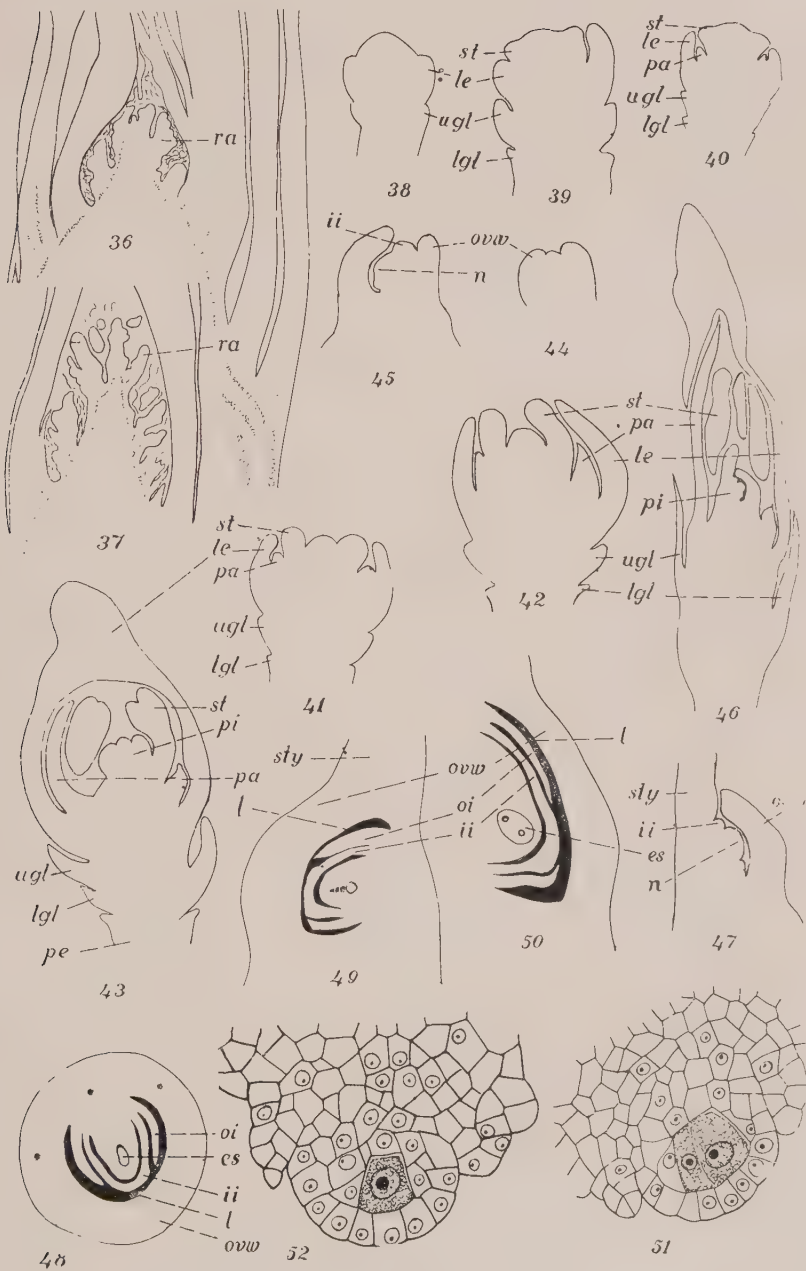 ra
36
ra
37
38
st
le
ugl
lgl
39
st
le
pa
ugl
lgl
40
ii
ovw
n
45
44
st
pa
le
pi
ugl
lgl
42
46
st
le
pa
ugl
lgl
41
st
pi
pa
ugl
lgl
pe
43
sty
ovw
l
oi
ii
49
l
es
50
sty
ii
n
47
oi
es
ii
l
ovw
48
52
51